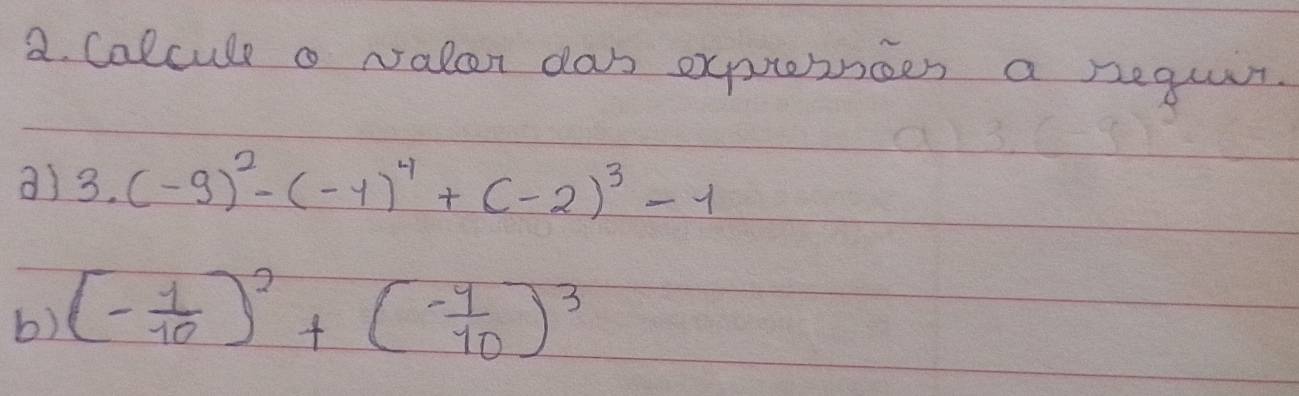 2. Calcule o valor das expressões a seguir.
a) 3.(-9)² - (-1)⁴ + (-2)³ - 1
b) (-1/10)² + (-1/10)³